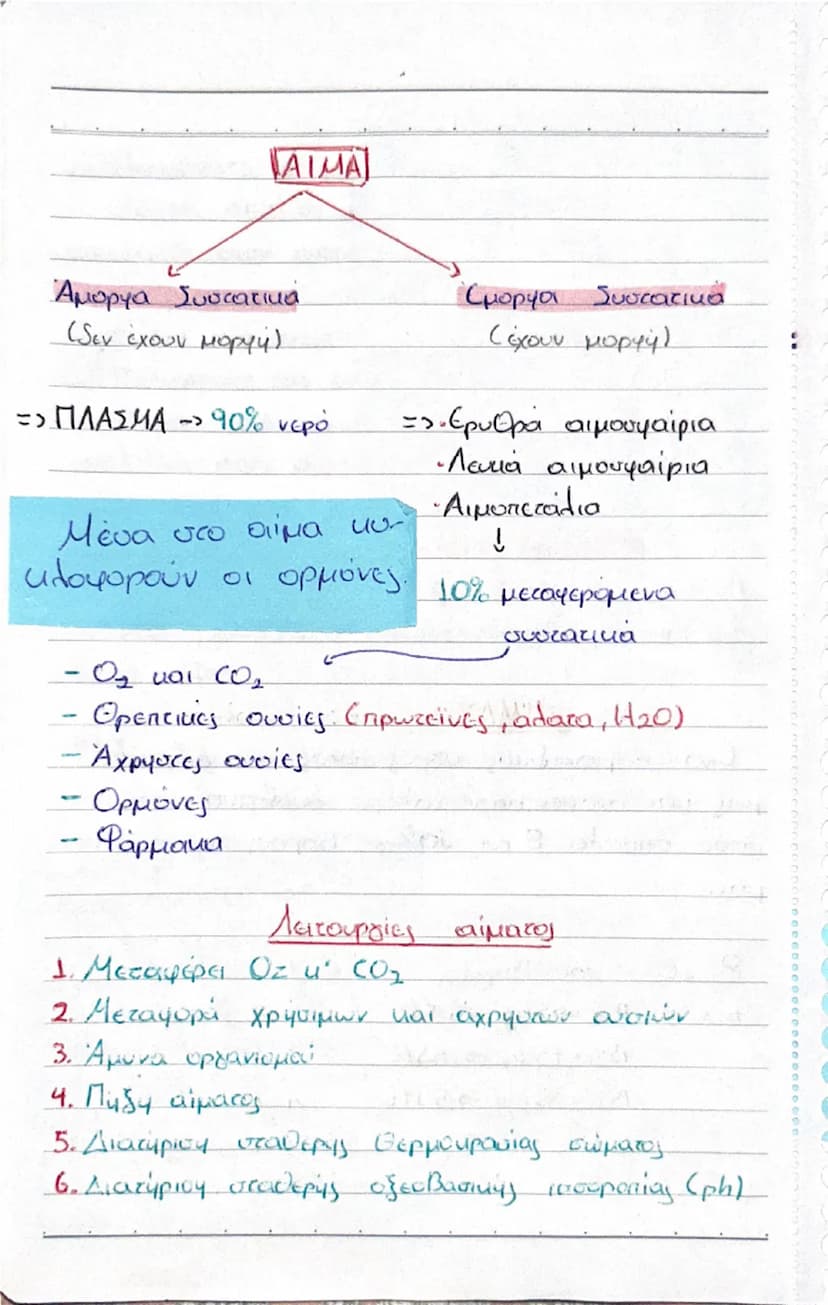 ΑΙΜΑ
Άμορφα Συστατικά
(δεν έχουν μορφή)
Έμορφα Συστατικά
(έχουν μορφή)
=> ΠΛΑΣΜΑ -> 90% νερό
=> · Ερυθρά αιμοσφαίρια
· Λευκά αιμοσφαίρια
· Αιμοπετάλια
↓
10% μεταφερόμενα
συστατικά
Μέσα στο αίμα κυ-
κλοφορούν οι ορμόνες.
- O2 και CO2
- Θρεπτικές ουσίες (πρωτεΐνες, άλατα, H2O)
- Άχρηστες ουσίες
- Ορμόνες
- Φάρμακα
Λειτουργίες αίματος
1. Μεταφέρει O2 κ' CO2
2. Μεταφορά χρήσιμων και άχρηστων ουσιών
3. Άμυνα οργανισμού
4. Πήξη αίματος
5. Διατήρηση σταθερής θερμοκρασίας σώματος
6. Διατήρηση σταθερής οξεοβασικής ισορροπίας (ph)